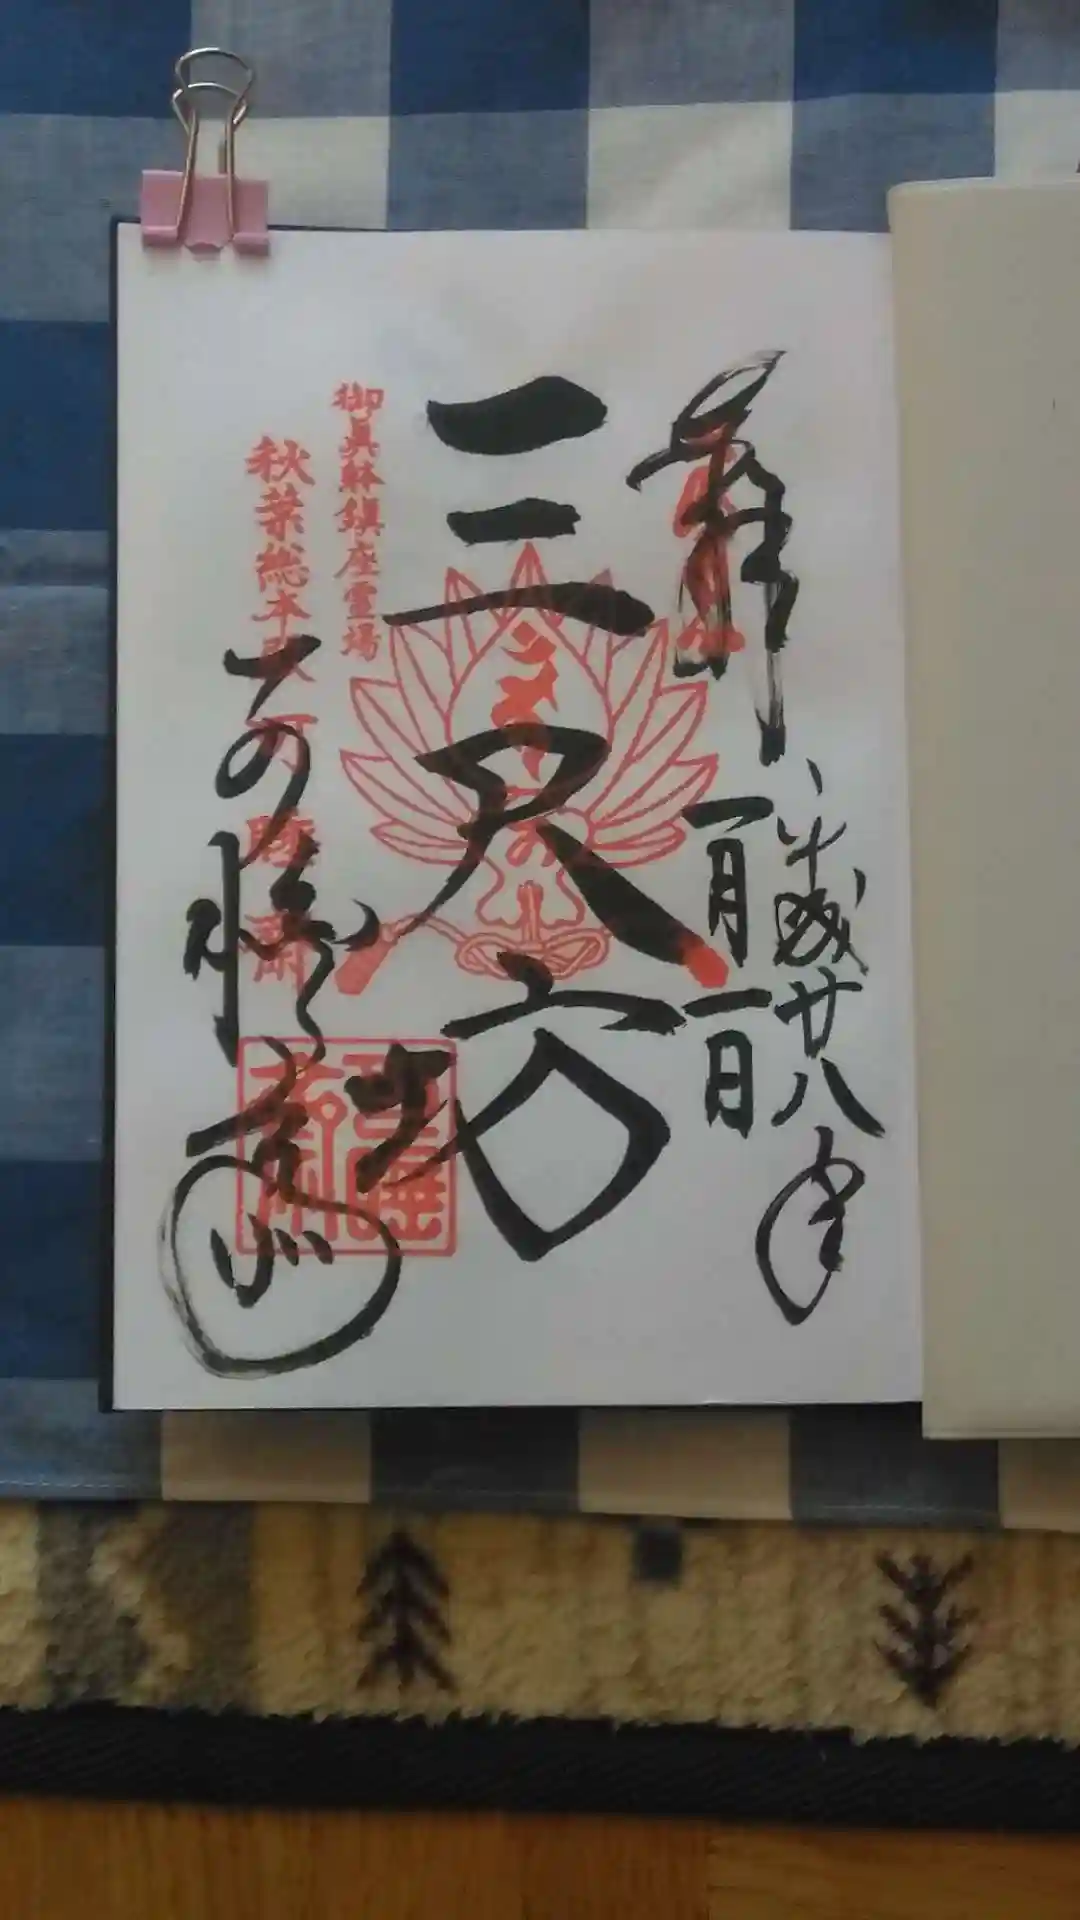 平成廿八年
一月一日
三尺坊
御眞躰鎭座霊場
秋葉総本殿 可睡齋
可睡斎